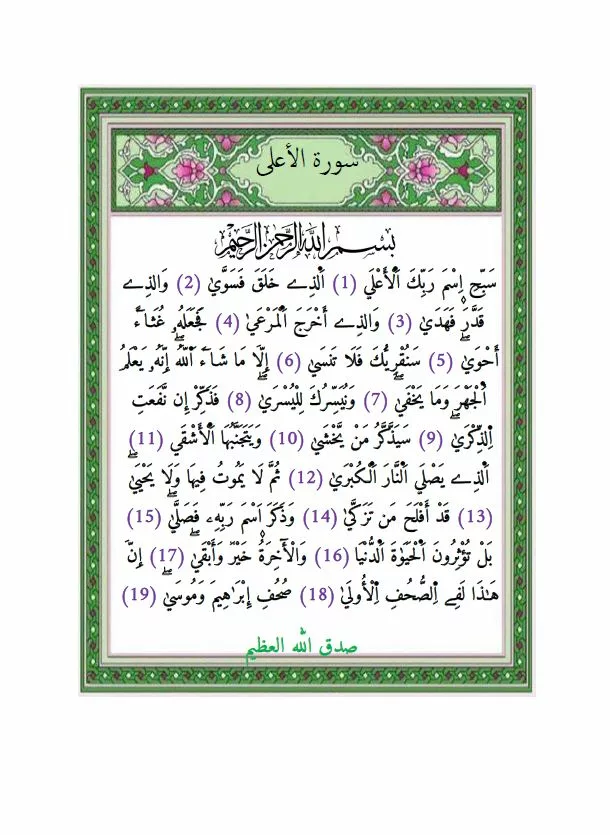 سورة الأعلى
بسم الله الرحمن الرحيم
سَبِّحِ اِسْمَ رَبِّكَ اَ۬لْأَعْلَي (1) اَ۬لذِے خَلَقَ فَسَوّ۪يٰ (2) وَالذِے
قَدَّرَ فَهَد۪يٰ (3) وَالذِے أَخْرَجَ اَ۬لْمَرْع۪يٰ (4) فَجَعَلَهُۥ غُثَآءً
أَحْو۪يٰ (5) سَنُقْرِئُكَ فَلَا تَنس۪يٰ (6) إِلَّا مَا شَآءَ اَ۬للَّهُ إِنَّهُۥ يَعْلَمُ
اُ۬لْجَهْرَ وَمَا يَخْف۪يٰ (7) وَنُيَسِّرُكَ لِلْيُسْر۪يٰ (8) فَذَكِّرْ إِن نَّفَعَتِ
اِ۬لذِّكْر۪يٰ (9) سَيَذَّكَّرُ مَنْ يَّخْش۪يٰ (10) وَيَتَجَنَّبُهَا اَ۬لْأَشْقَي (11)
اَ۬لذِے يَصْلَي اَ۬لنَّارَ اَ۬لْكُبْر۪يٰ (12) ثُمَّ لَا يَمُوتُ فِيهَا وَلَا يَحْي۪يٰ
(13) قَدْ أَفْلَحَ مَن تَزَكّ۪يٰ (14) وَذَكَرَ اَ۪سْمَ رَبِّهِۦ فَصَلّ۪يٰ (15)
بَلْ تُؤْثِرُونَ اَ۬لْحَيَوٰةَ اَ۬لدُّنْيَا (16) وَالْأٓخِرَةُ خَيْرٌ وَأَبْق۪يٰ (17) إِنَّ
هَٰذَا لَفِے اِ۬لصُّحُفِ اِ۬لْأُول۪يٰ (18) صُحُفِ إِبْرَٰهِيمَ وَمُوس۪يٰ (19)
صدق الله العظيم